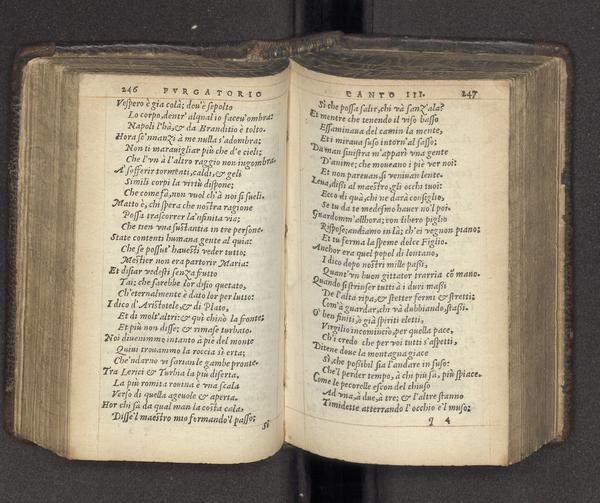 246 PVRGATORIO
Vespero è già colà; dou'è sepolto
Lo corpo, dentr' alqual io facea ombra:
Napoli l'hà, & da Branditio è tolto.
Hora se'nnanzi à me nulla s'adombra;
Non ti marauigliar più che d'e cieli;
Che l'vn à l'altro raggio non ingombra.
A' sofferir tormenti, caldi, & geli
Simili corpi la virtù dispone;
Che come fà, non vuol ch'à noi si sueli.
Matto è, chi spera che nostra ragione
Possa trascorrer la'nfinita via;
Che tien vna sustantia in tre persone.
State contenti humana gente al quia:
Che se possut' hauesti veder tutto;
Mestier non era partorir Maria:
Et disiar vedesti senza frutto
Tai; che sarebbe lor disio quetato,
Ch'eternalmente è dato lor per lutto:
I dico d'Aristotele, & di Plato,
Et di molt'altri: & quì chinò la fronte;
Et più non disse; & rimase turbato.
Noi diuenimmo intanto à piè del monte
Quiui trouammo la roccia sì erta;
Che'ndarno vi sarian le gambe pronte.
Tra Lerici & Turbia la più diserta,
La più romita rouina è vna scala
Verso di quella ageuole & aperta.
Hor chi sà da qual man la costa cala,
Disse'l maestro mio fermando'l passo;
Si
CANTO III. 247
Sì che possa salir, chi và sanz'ala?
Et mentre che tenendo il viso basso
Essaminaua del camin la mente,
Et i miraua suso intorn'al sasso;
Da man sinistra m'apparì vna gente
D'anime; che moueano i piè ver noi:
Et non pareuan, sì veniuan lente.
Leua, dissi al maestro, gli occhi tuoi:
Ecco di quà, chi ne darà consiglio,
Se tu da te medesmo hauer no'l poi.
Guardomm'allhora; con libero piglio
Rispose; andiamo in là; ch'ei vegnon piano;
Et tu ferma la speme dolce Figlio.
Anchor era quel popol di lontano,
I dico dopo nostri mille passi,
Quant'vn buon gittator trarria cō mano.
Quando si strinser tutti à i duri massi
De l'alta ripa, & stetter fermi & stretti;
Com'à guardar, chi và dubbiando, stassi.
O' ben finiti, ò già spiriti eletti,
Virgilio incominciò, per quella pace,
Ch'i credo che per voi tutti s'aspetti,
Ditene doue la montagna giace
Sì, che possibil sia l'andare in suso:
Che'l perder tempo, à chi più sà, più spiace.
Come le pecorelle escon del chiuso
Ad vna, à due, à tre; & l'altre stanno
Timidette atterrando l'occhio e'l muso;
q 4